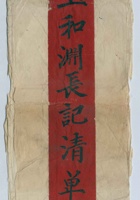 和淵長記清单